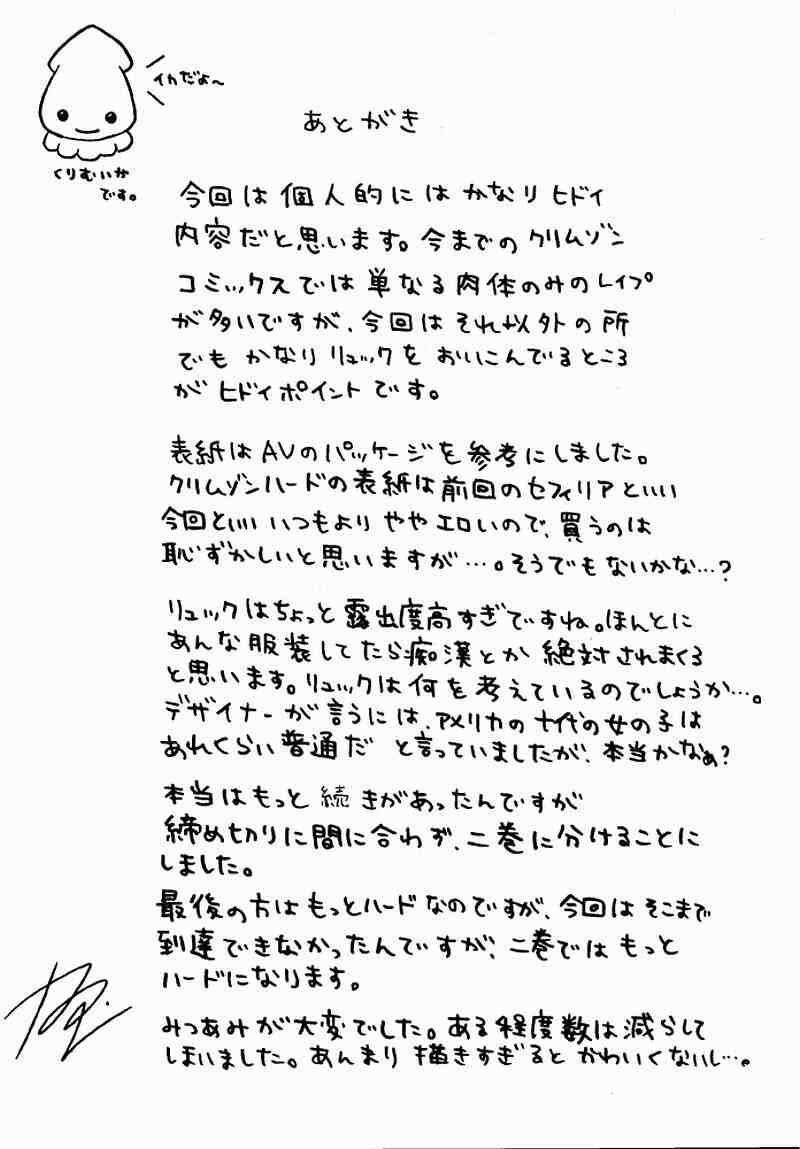 イカだよ〜
くりむいか
です。
あとがき
今回は個人的にはかなりヒドイ
内容だと思います。今までのクリムゾン
コミックスでは単なる肉体のみのレイプ
が多いですが、今回はそれ以外の所
でもかなりリュックをおいこんでるところ
がヒドイポイントです。
表紙はAVのパッケージを参考にしました。
クリムゾンハードの表紙は前回のセフィリアといい
今回といいいつもよりややエロいので、買うのは
恥ずかしいと思いますが…。そうでもないかな…?
リュックはちょっと露出度高すぎですね。ほんとに
あんな服装してたら痴漢とか絶対されまくる
と思います。リュックは何を考えているのでしょうか…。
デザイナーが言うには、アメリカの十代の女の子は
あれくらい普通だ と言っていましたが、本当かなぁ?
本当はもっと続きがあったんですが
締め切りに間に合わず、二巻に分けることに
しました。
最後の方はもっとハードなのですが、今回はそこまで
到達できなかったんですが、二巻ではもっと
ハードになります。
みつあみが大変でした。ある程度数は減らして
しまいました。あんまり描きすぎるとかわいくないし…。